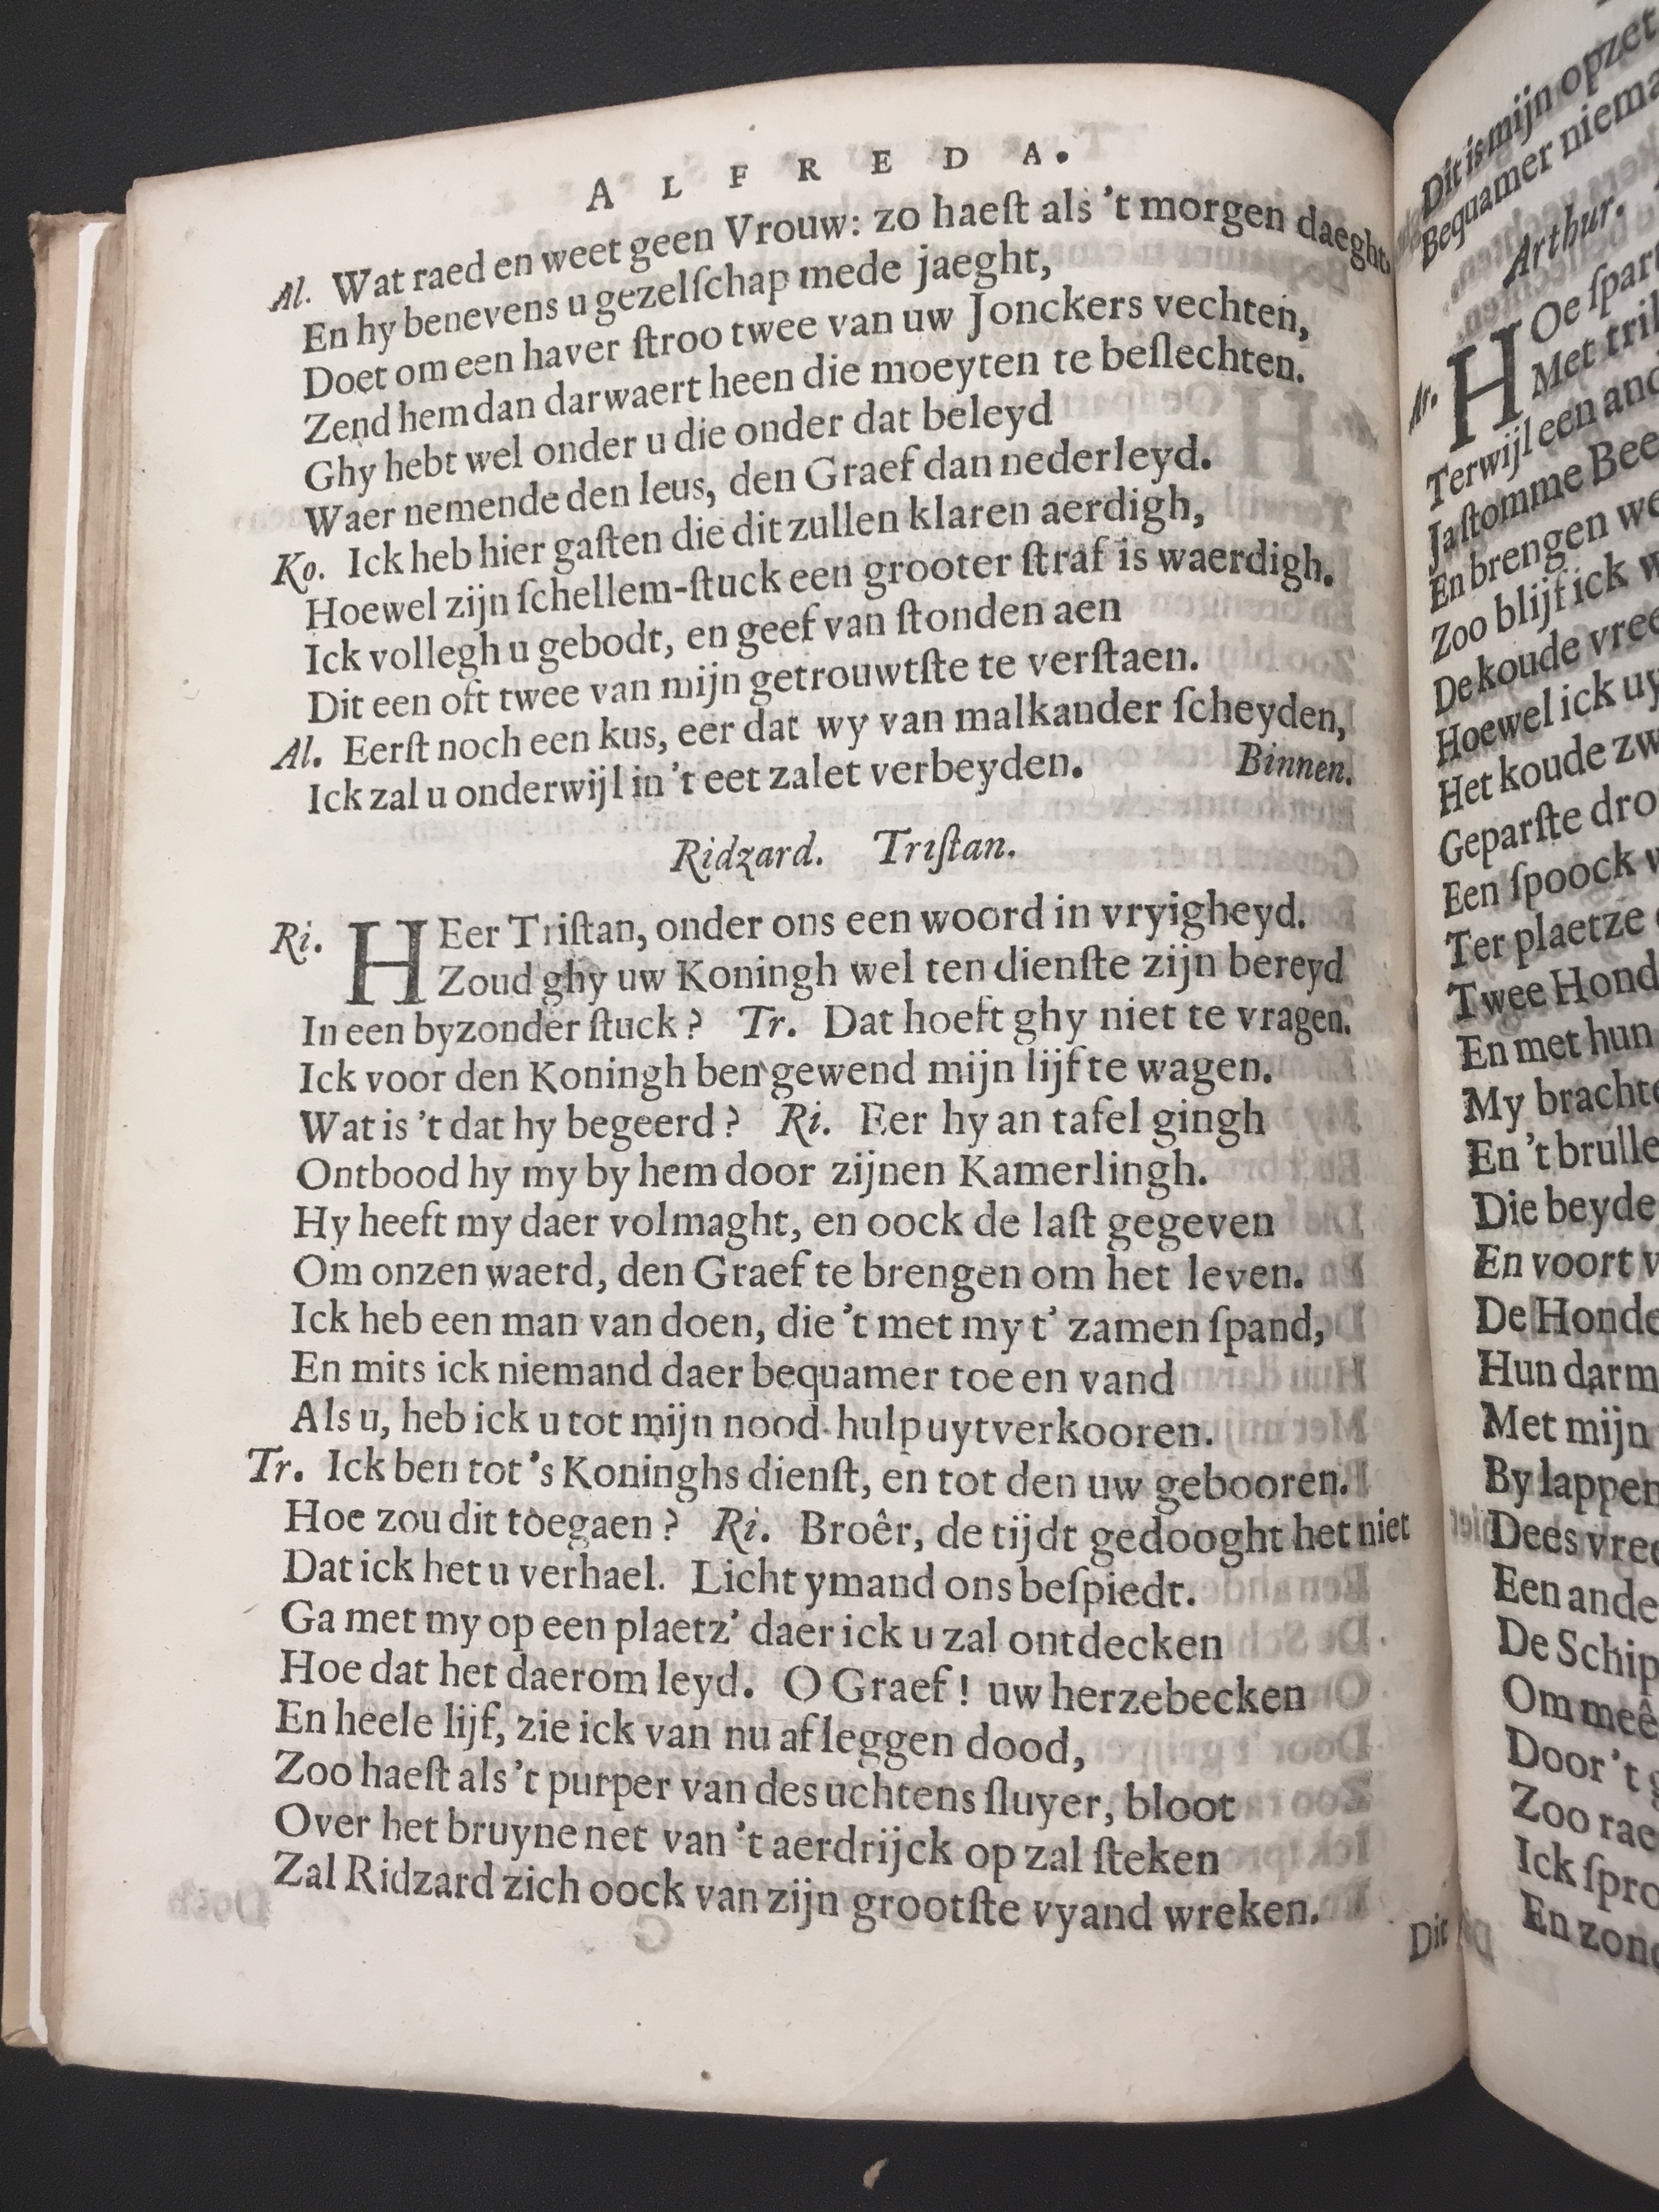 ALFREDA.
Al. Wat raed en weet geen Vrouw: zo haeſt als 't morgen daeght,
En hy benevens u gezelſchap mede jaeght,
Doet om een haver ſtroo twee van uw Jonckers vechten,
Zend hem dan darwaert heen die moeyten te beſlechten.
Ghy hebt wel onder u die onder dat beleyd
Waer nemende den leus, den Graef dan nederleyd.
Ko. Ick heb hier gaſten die dit zullen klaren aerdigh,
Hoewel zijn ſchellem-ſtuck een grooter ſtraf is waerdigh.
Ick vollegh u gebodt, en geef van ſtonden aen
Dit een oft twee van mijn getrouwtſte te verſtaen.
Al. Eerſt noch een kus, eer dat wy van malkander ſcheyden,
Ick zal u onderwijl in 't eet zalet verbeyden. Binnen.
Ridzard. Triſtan.
Ri. HEer Triſtan, onder ons een woord in vryigheyd.
Zoud ghy uw Koningh wel ten dienſte zijn bereyd
In een byzonder ſtuck? Tr. Dat hoeft ghy niet te vragen.
Ick voor den Koningh ben gewend mijn lijf te wagen.
Wat is 't dat hy begeerd? Ri. Eer hy an tafel gingh
Ontbood hy my by hem door zijnen Kamerlingh.
Hy heeft my daer volmaght, en oock de laſt gegeven
Om onzen waerd, den Graef te brengen om het leven.
Ick heb een man van doen, die 't met my t' zamen ſpand,
En mits ick niemand daer bequamer toe en vand
Als u, heb ick u tot mijn nood-hulp uytverkooren.
Tr. Ick ben tot 's Koninghs dienſt, en tot den uw gebooren.
Hoe zou dit toegaen? Ri. Broêr, de tijdt gedooght het niet
Dat ick het u verhael. Licht ymand ons beſpiedt.
Ga met my op een plaetz' daer ick u zal ontdecken
Hoe dat het daerom leyd. O Graef! uw herzebecken
En heele lijf, zie ick van nu af leggen dood,
Zoo haeſt als 't purper van des uchtens ſluyer, bloot
Over het bruyne net van 't aerdrijck op zal ſteken
Zal Ridzard zich oock van zijn grootſte vyand wreken.
Dit
Dit is mijn opzet
Bequamer niema
Arthur.
Ar. HOe ſpart
Met tril
Terwijl een and
Ja ſtomme Bee
En brengen we
Zoo blijf ick w
De koude vree
Hoewel ick uy
Het koude zw
Geparſte dro
Een ſpoock w
Ter plaetze
Twee Hond
En met hun
My brachte
En 't brulle
Die beyde
En voort v
De Honde
Hun darm
Met mijn
By lappen
Dees vree
Een ande
De Schip
Om meê
Door 't g
Zoo rae
Ick ſpro
En zond